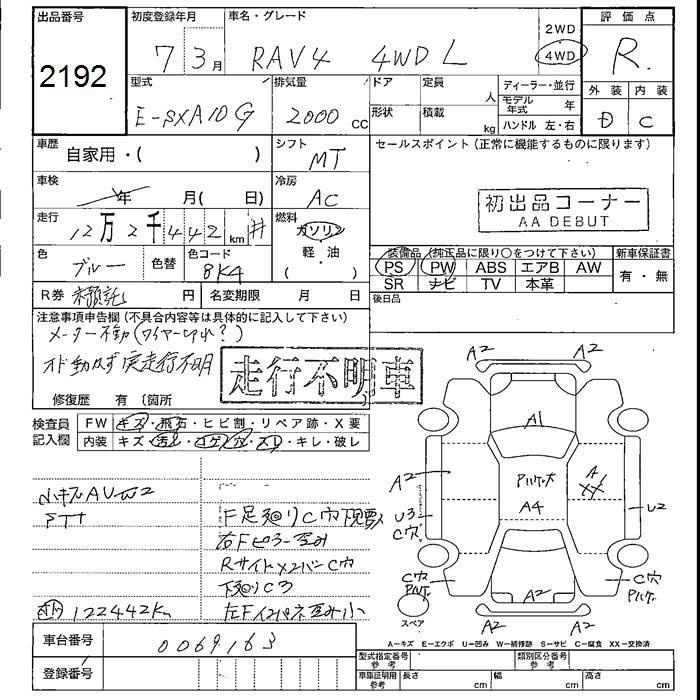 出品番号
2192
初度登録年月
7 3月
車名・グレード
RAV4 4WD L
2WD
4WD
評価点
R
外装 内装
D C
型式
E-SXA10G
排気量
2000 cc
ドア
定員
人
形状
積載
kg
ディーラー・並行
モデル年式 年
ハンドル 左・右
車歴
自家用・( )
シフト
MT
セールスポイント(正常に機能するものに限ります)
車検
年 月( 日)
冷房
AC
初出品コーナー
AA DEBUT
走行
12万2千442km #
燃料
ガソリン
軽・油
( )
色
ブルー
色替
色コード
8K4
装備品(純正品に限り○をつけて下さい)
PS PW ABS エアB AW
SR ナビ TV 本革
新車保証書
有・無
R券
円
名変期限 月 日
後日品
注意事項申告欄(不具合内容等は具体的に記入して下さい)
メーター不動(ワイヤー切れ?)
オド動かず実走行不明
走行不明車
修復歴 有 (箇所
検査員記入欄
FW キズ・飛石・ヒビ割・リペア跡・X要
内装 キズ・汚れ・コゲ穴・スレ・キレ・破レ
F足廻りC穴下現要
右Fピラー歪み
RサイドメンバーC穴
下廻りC3
122442Km
左Fインパネ歪み小
A2 A2
A1
A2
Pルケ大
A XX
A4
U3
C穴
U2
C穴
Pルケ
A2
C穴
Pルケ
スペア
A2 A2
A…キズ E…エクボ U…凹み W…補修跡 S…サビ C…腐食 XX…交換済
車台番号
0069163
登録番号
型式指定番号
参考
類別区分番号
参考
車庫証明用
参考
長さ cm
幅 cm
高さ cm